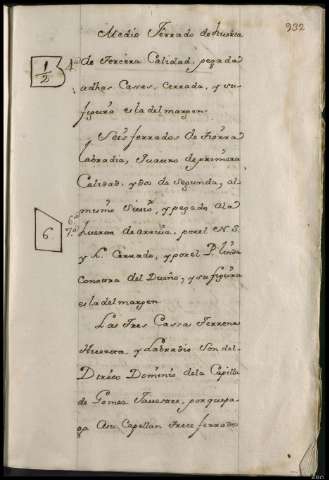 932
Medio Ferrado de huerta
1/2
4ª
de tercera Calidad, pegada
adhas Casas, Cerrada, y su
figura es la del margen
Seis ferrados de tierra
labradia, quatro de primera
Calidad, y dos de segunda, al
mismo sitio, y pegado ala
6
6ª
7ª
huerta de arriva, por el N. S.
y L. Cerrado, y por el P. linda
con otra del Dueño, y su figura
es la del margen
Las tres Casas terreno
Huerta, y Labradio son del
Directo Dominio dela Capilla
de Gomez por que pa
ga asu Capellan trece ferrados